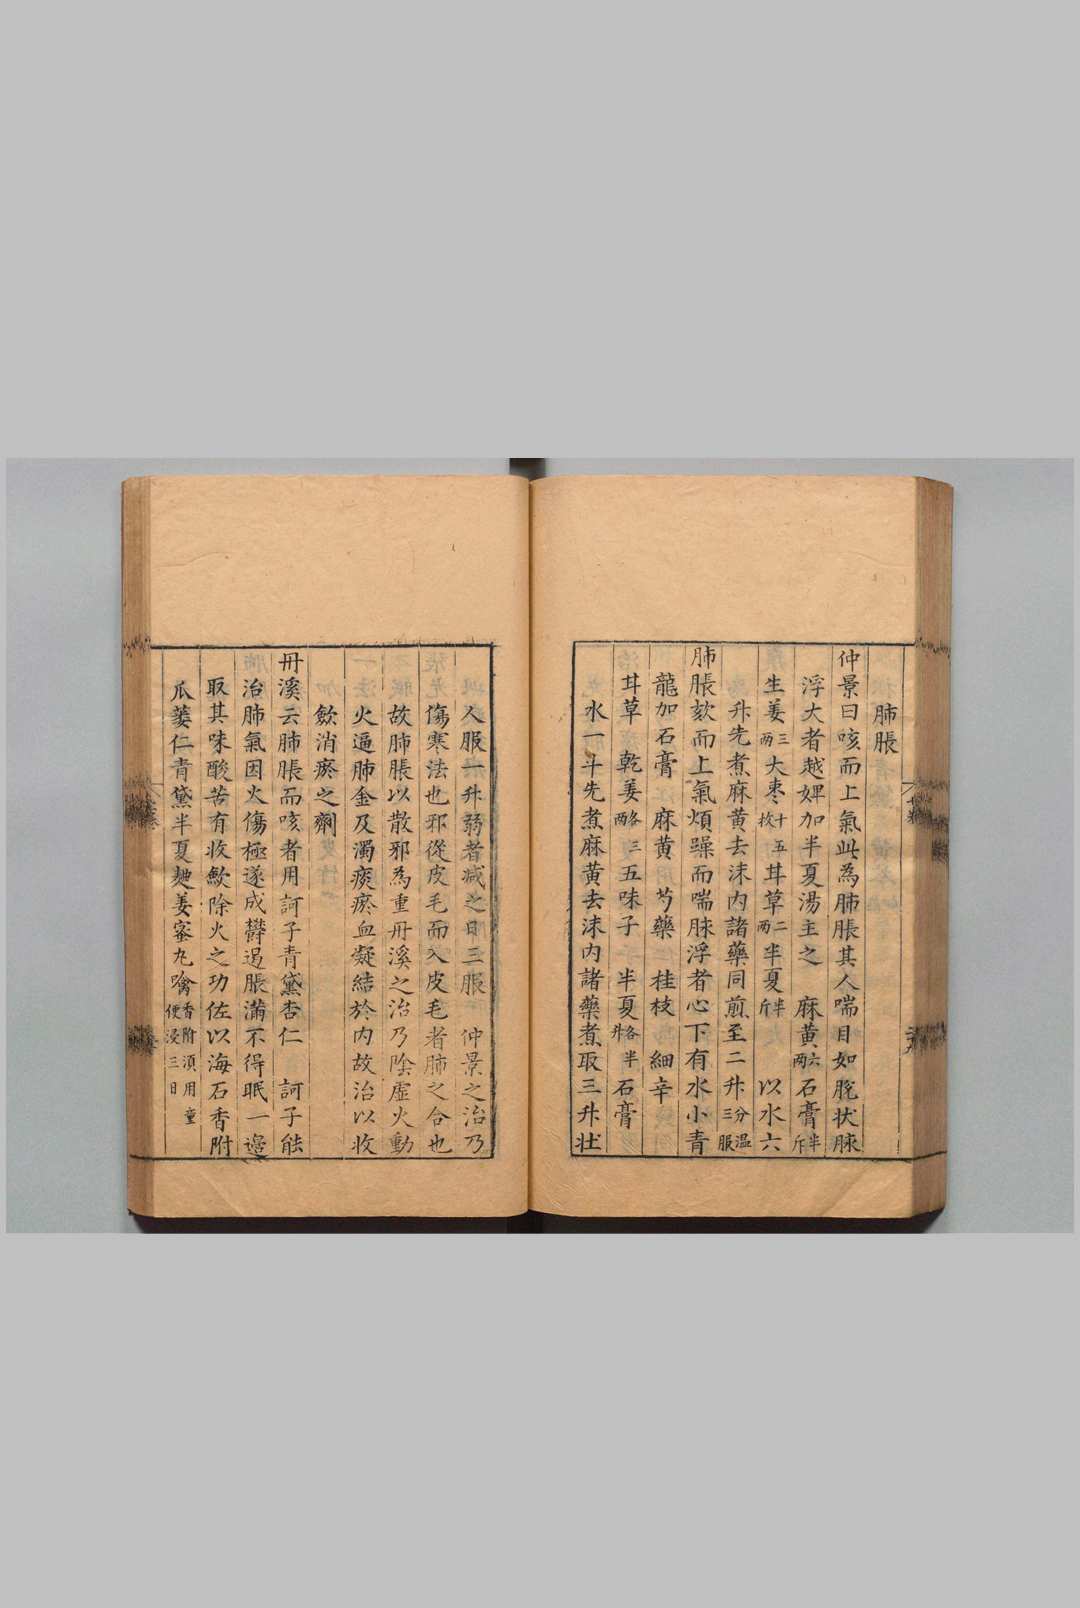 肺脹
仲景曰咳而上氣此為肺脹其人喘目如脫狀脉
浮大者越婢加半夏湯主之　麻黄六两石膏半斤
生姜三两大枣十五枚甘草二两半夏半斤　以水六
升先煮麻黄去沫内諸藥同煎至二升分温三服
肺脹欬而上氣煩躁而喘脉浮者心下有水小青
龍加石膏　麻黄　芍藥　桂枝　細辛
甘草　乾姜各三两五味子　半夏各半升石膏
水一斗先煮麻黄去沫内諸藥煮取三升壮
人服一升弱者减之日三服　仲景之治乃
傷寒法也邪從皮毛而入皮毛者肺之合也
故肺脹以散邪為重丹溪之治乃陰虚火動
火逼肺金及濁痰瘀血凝結於内故治以收
歛消瘀之劑
丹溪云肺脹而咳者用訶子青黛杏仁　訶子能
治肺氣因火傷極遂成欝遏脹滿不得眠一邉
取其味酸苦有收歛除火之功佐以海石香附
瓜蔞仁青黛半夏麯姜蜜丸噙香附須用童便浸三日